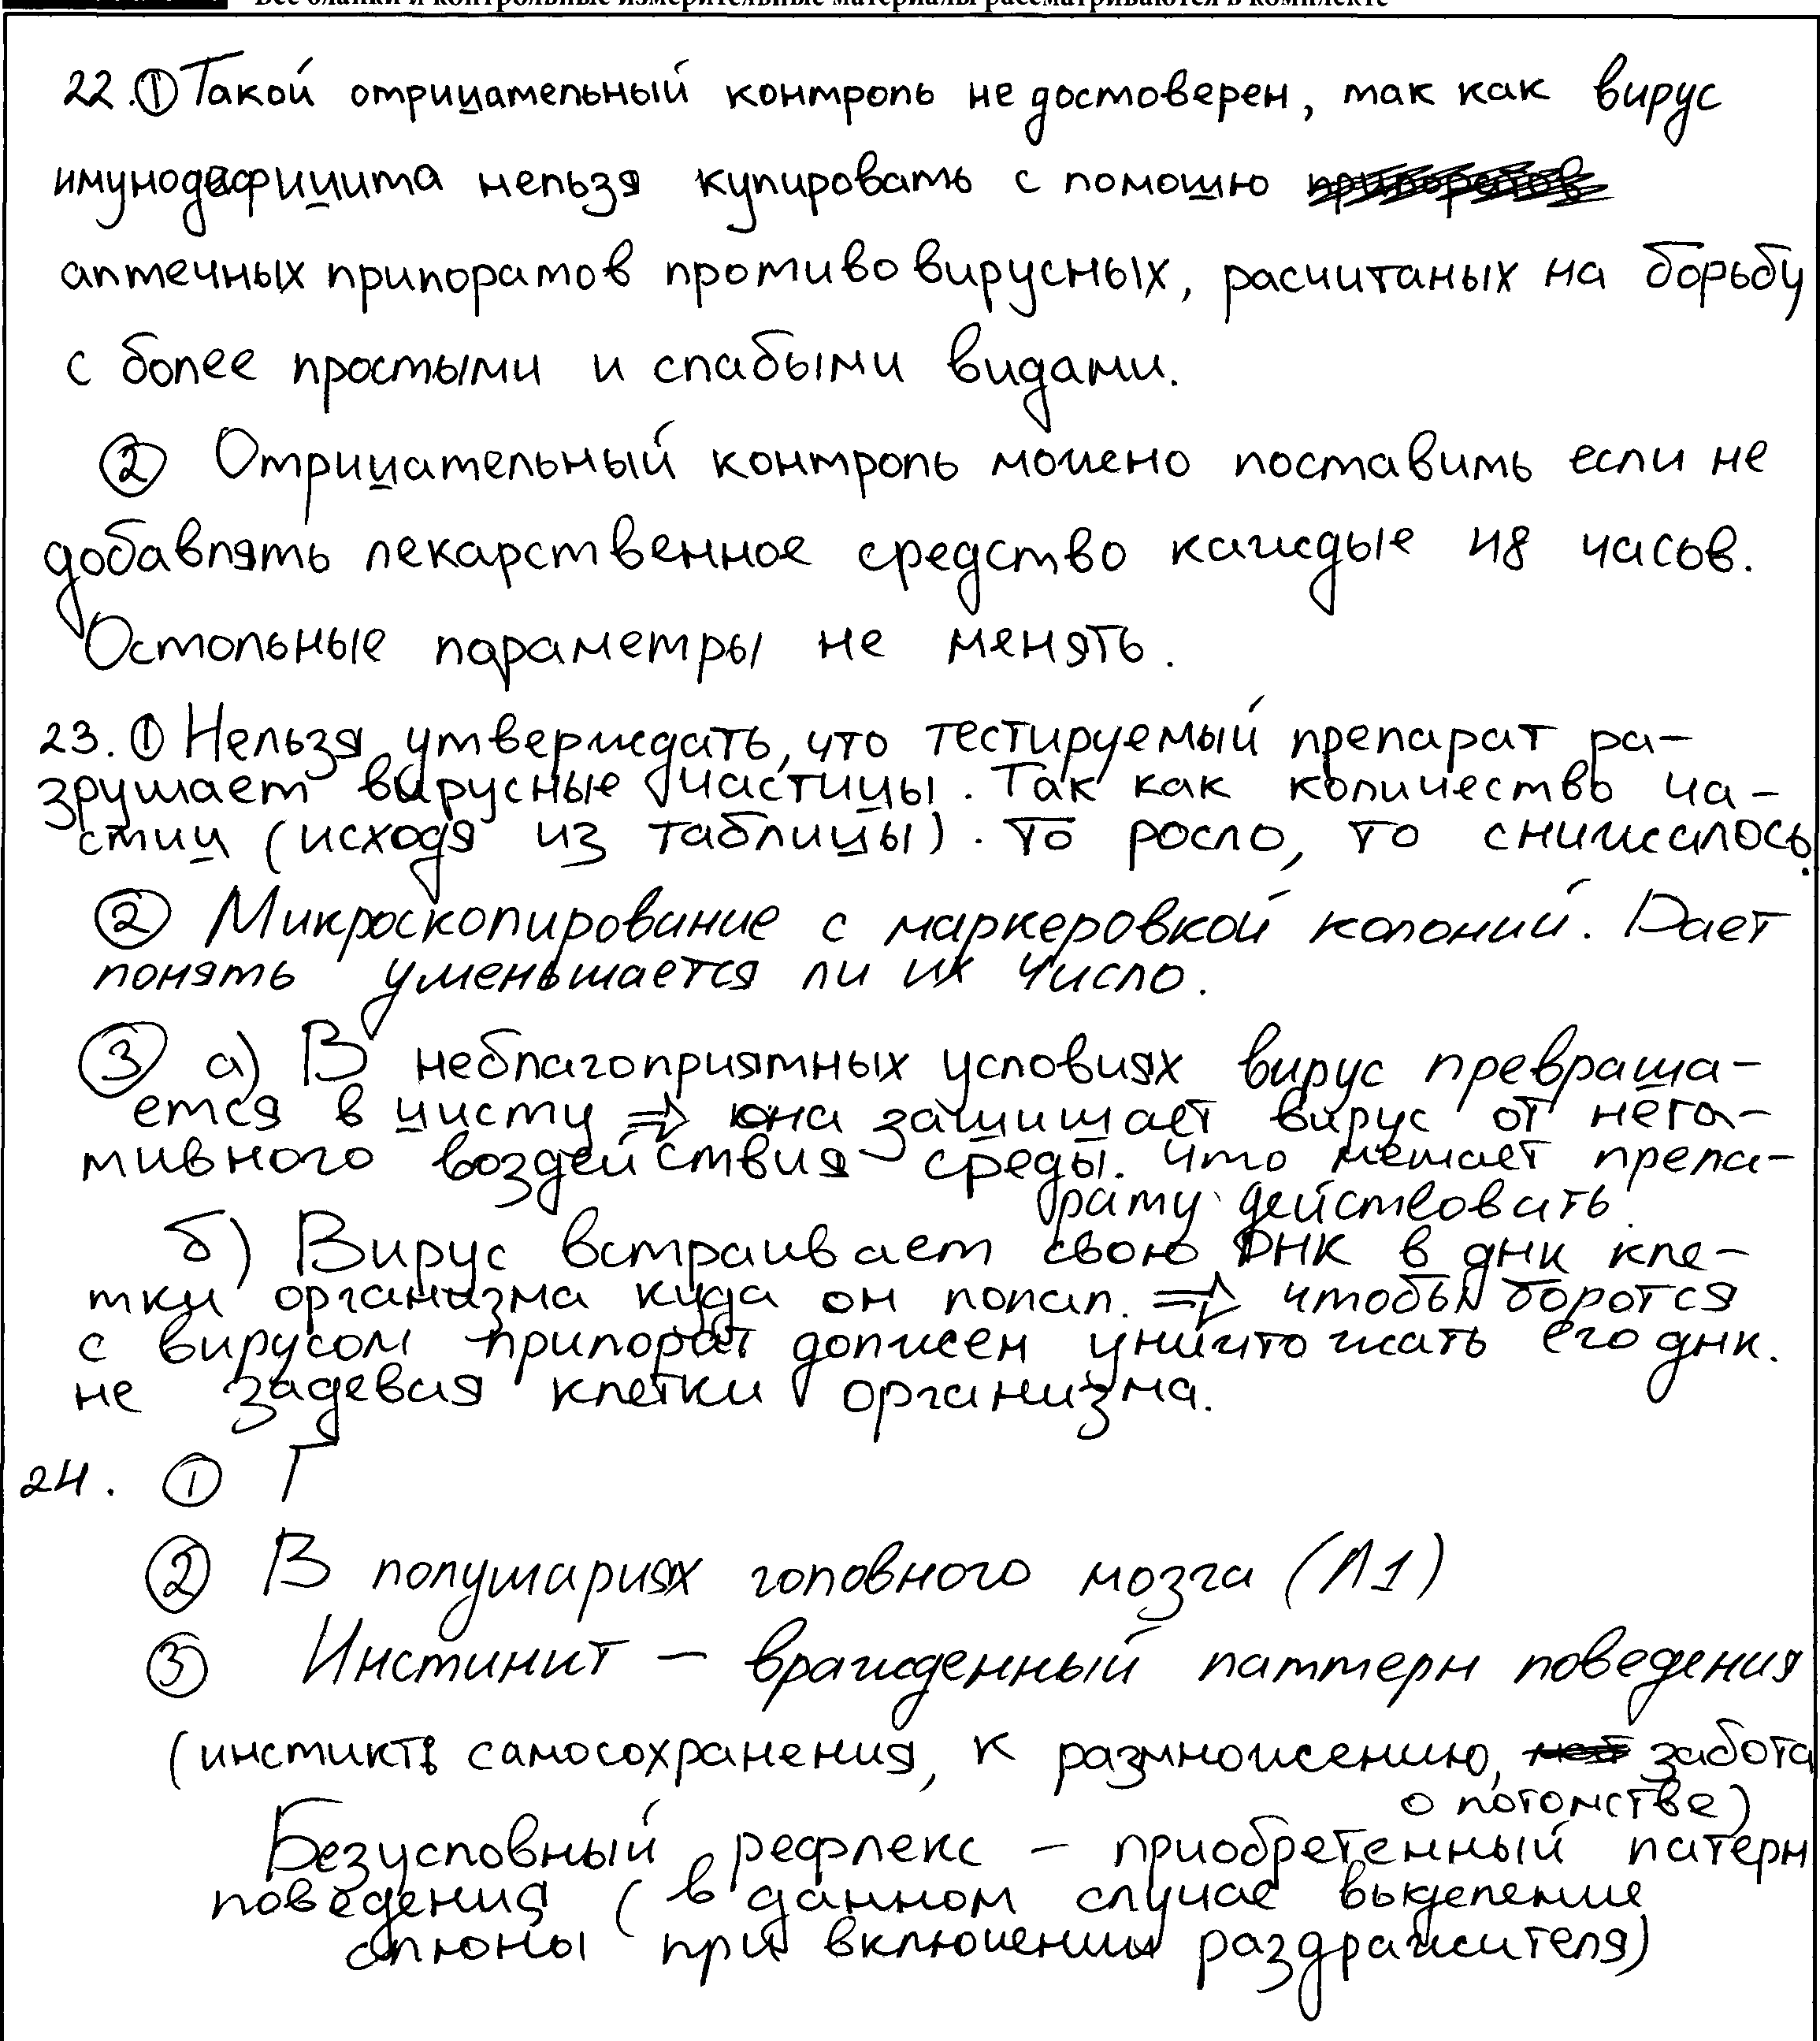 Все бланки и контрольные измерительные материалы рассматриваются в комплекте
22. ① Такой отрицательный контроль не достоверен, так как вирус
имунодефицита нельзя купировать с помошю
аптечных припоратов противовирусных, расчитаных на борьбу
с более простыми и слабыми видами.
② Отрицательный контроль можно поставить если не
добавлять лекарственное средство каждые 48 часов.
Остольные параметры не менять.
23. ① Нельзя утверждать, что тестируемый препарат ра-
зрушает вирусные частицы. Так как количество ча-
стиц (исходя из таблицы). то росло, то снижалось.
② Микроскопирование с маркеровкой колоний. Дает
понять уменьшается ли их число.
③ а) В неблагоприятных условиях вирус превраща-
ется в цисту ⇒ она защищает вирус от нега-
тивного воздействия среды. что мешает препа-
рату действовать.
б) Вирус встраивает свою ДНК в днк кле-
тки организма куда он попал. ⇒ чтобы боротся
с вирусом припорат должен уничтожать его днк.
не задевая клетки организма.
24. ① Г
② В полушариях головного мозга (Л1)
③ Инстинкт – вражденный паттерн поведения
(инстикт: самосохранения, к размножению, забота
о потомстве)
Безусловный рефлекс – приобретенный патерн
поведения (в данном случае выделение
слюны при включении раздражителя)